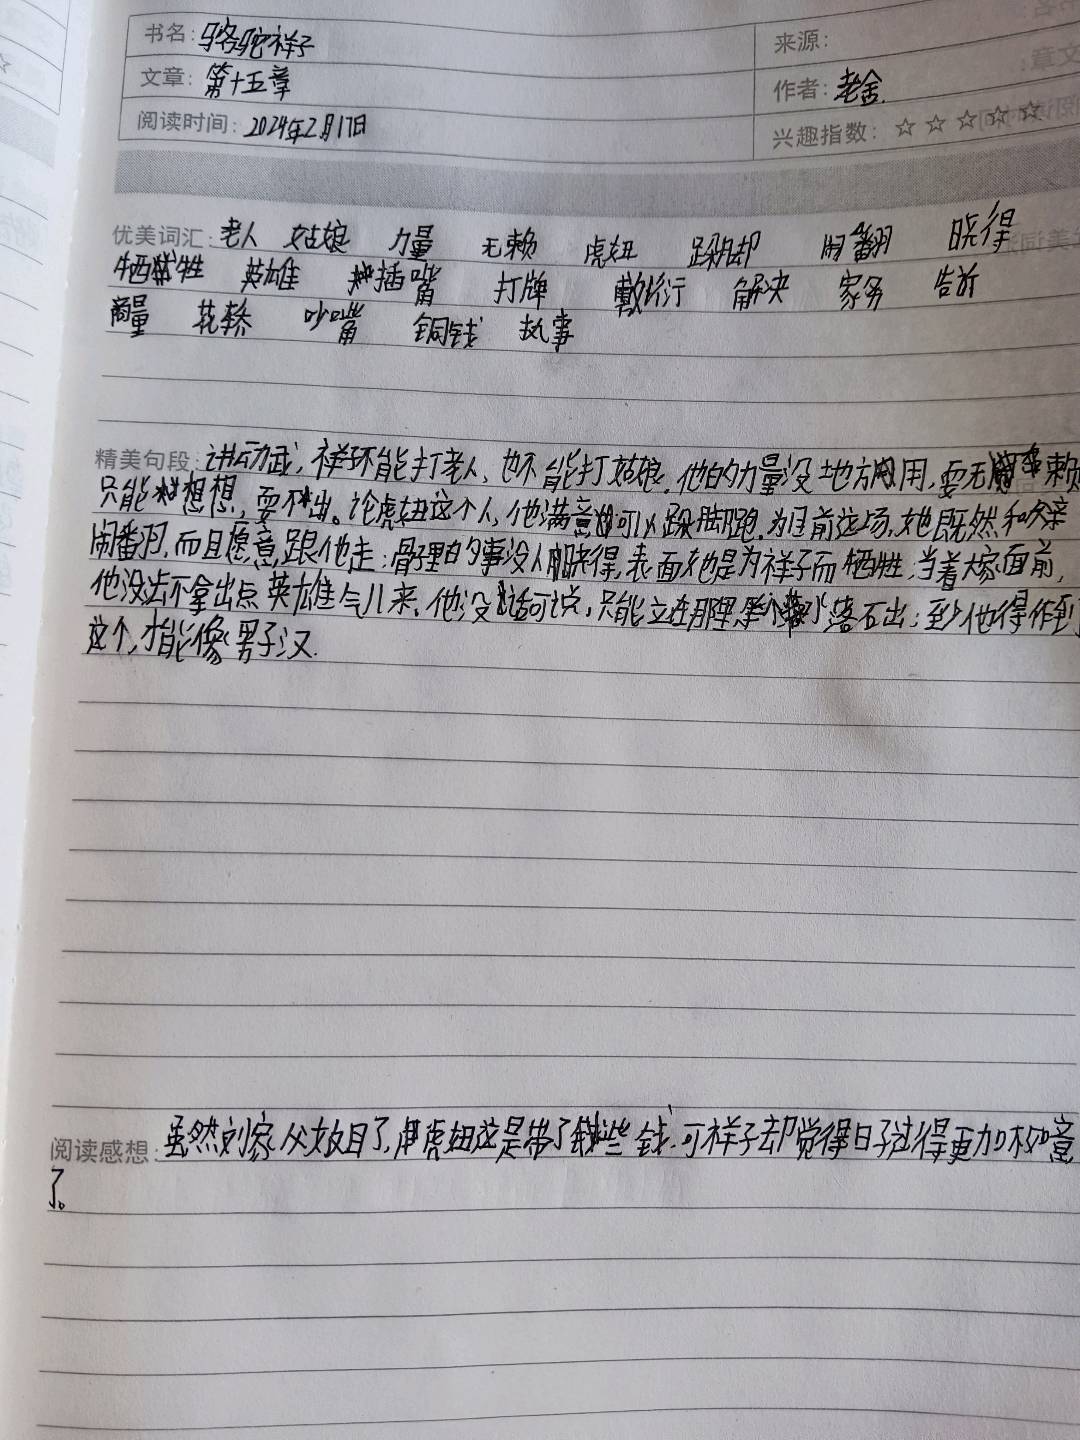 书名: 骆驼祥子
来源:
文章: 第十五章
作者: 老舍.
阅读时间: 2024年2月17日
兴趣指数: ☆ ☆ ☆ ☆ ☆
优美词汇: 老人 姑娘 力量 无赖 虎妞 跺脚 闹翻 晓得
牺牲 英雄 插嘴 打牌 敷衍 解决 家务 告诉
商量 花轿 吵嘴 铜钱 执事
精美句段: 讲动武, 祥环能打老人, 也不能打姑娘. 他的力量没地方用, 耍无赖
只能想想, 耍不出。论虎妞这个人, 他满意可以跺脚跑. 为目前这场, 她既然和父亲
闹番羽, 而且愿意跟他走; 骨子里的事没人晓得, 表面她是为祥子而牺牲; 当着大家面前,
他没法不拿出点英雄气儿来. 他没话可说, 只能立在那里, 水落石出; 至少他得作到
这个, 才能像男子汉.
阅读感想: 虽然刘家父女
虎妞这是带了些钱. 可祥子却觉得日子过得更加不如意
了。